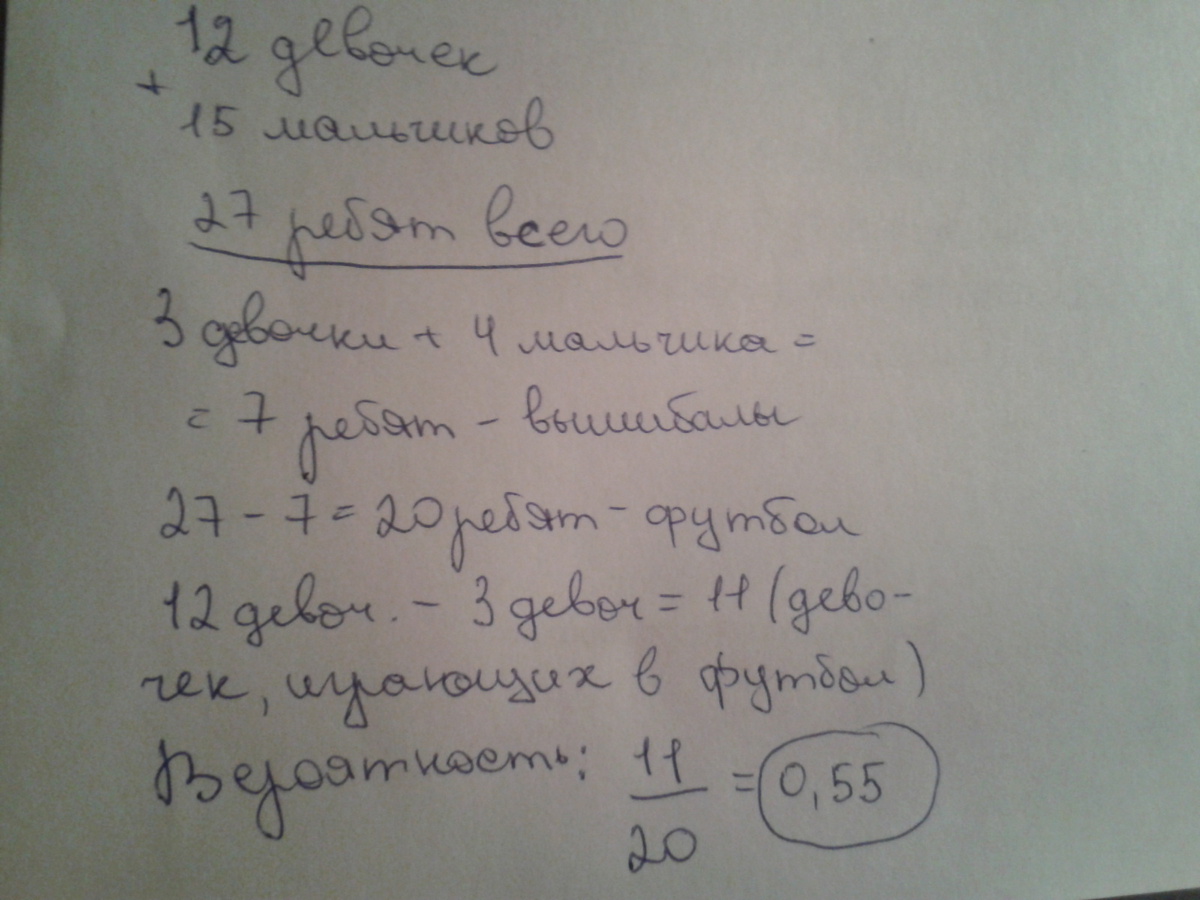 12 девочек
+
15 мальчиков
27 ребят всего
3 девочки + 4 мальчика =
= 7 ребят - вышибалы
27 - 7 = 20 ребят - футбол
12 девоч. - 3 девоч = 11 (дево-
чек, играющих в футбол)
Вероятность: 11/20 = 0,55